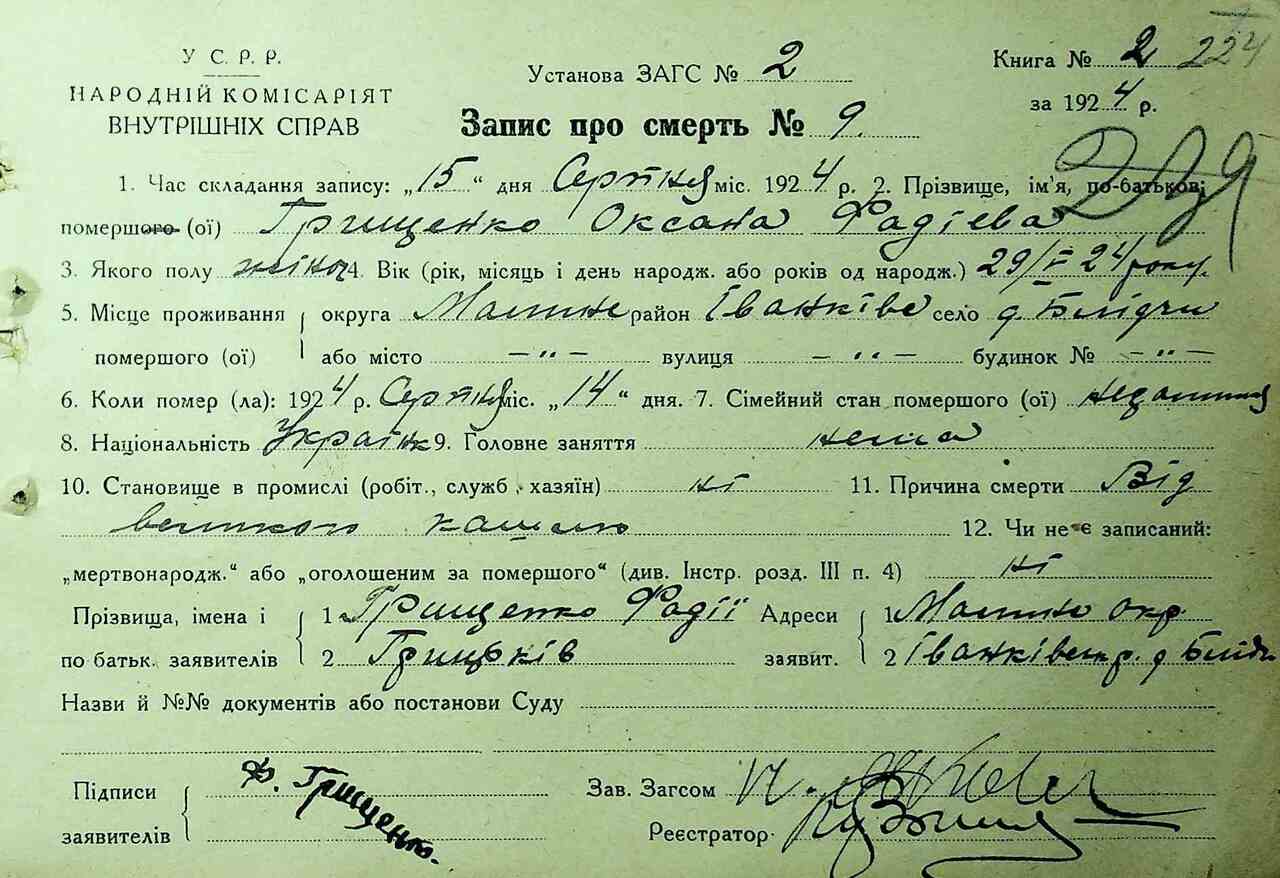 У С. Р. Р.
НАРОДНІЙ КОМІСАРІЯТ
ВНУТРІШНІХ СПРАВ
Установа ЗАГС № 2
Книга № 2 224
за 1924 р.
Запис про смерть № 9.
1. Час складання запису: „15“ дня Серпня міс. 1924 р. 2. Прізвище, ім'я, по-батькові
помершого (ої) Грищенко Оксана Фадієва
3. Якого полу жіноч 4. Вік (рік, місяць і день народж. або років од народж.) 29/I 24 року.
5. Місце проживання округа Малинс район Іванківс село д. Блідчи
помершого (ої) або місто — „ — вулиця — „ — будинок № — „ —
6. Коли помер (ла): 1924 р. Серпня міс. „14“ дня. 7. Сімейний стан помершого (ої)
8. Національність Україн 9. Головне заняття нема
10. Становище в промислі (робіт., служб., хазяїн) ні 11. Причина смерти Від
великого кашлю 12. Чи не є записаний:
„мертвонародж.“ або „оголошеним за помершого“ (див. Інстр. розд. III п. 4) ні
Прізвища, імена і 1 Грищенко Фадії Адреси 1 Малинс окр.
по батьк. заявителів 2 Грицьків заявит. 2 Іванківск р. д Блідч
Назви й №№ документів або постанови Суду
Підписи Ф. Грищенко.
заявителів
Зав. Загсом
Реєстратор